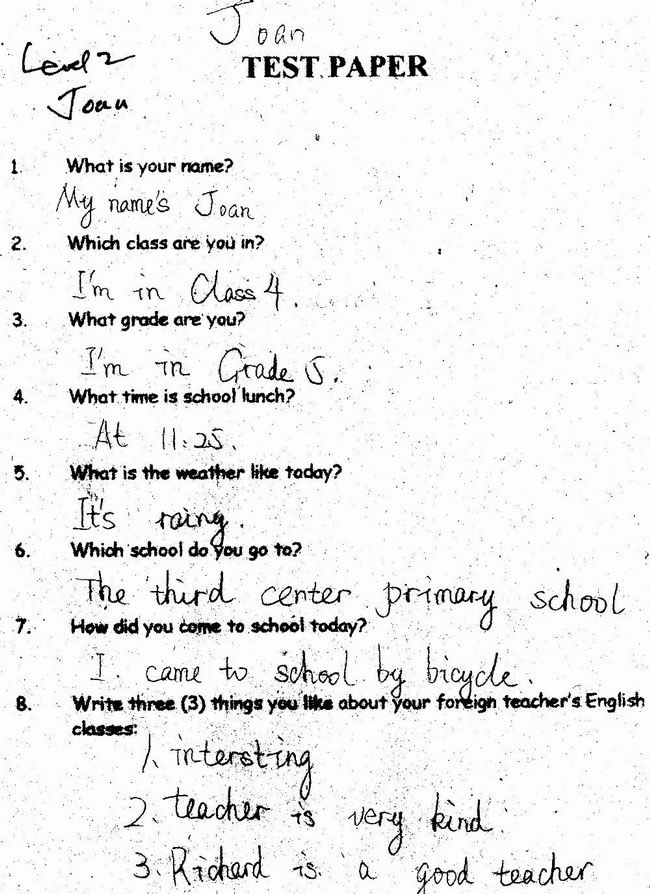 Joan
Level 2
TEST PAPER
Joan
1. What is your name?
My name's Joan
2. Which class are you in?
I'm in Class 4.
3. What grade are you?
I'm in Grade 5.
4. What time is school lunch?
At 11:25.
5. What is the weather like today?
It's raing.
6. Which school do you go to?
The third center primary school
7. How did you come to school today?
I. came to school by bicycle.
8. Write three (3) things you like about your foreign teacher's English
classes:
1. intersting
2. teacher is very kind.
3. Richard is a good teacher